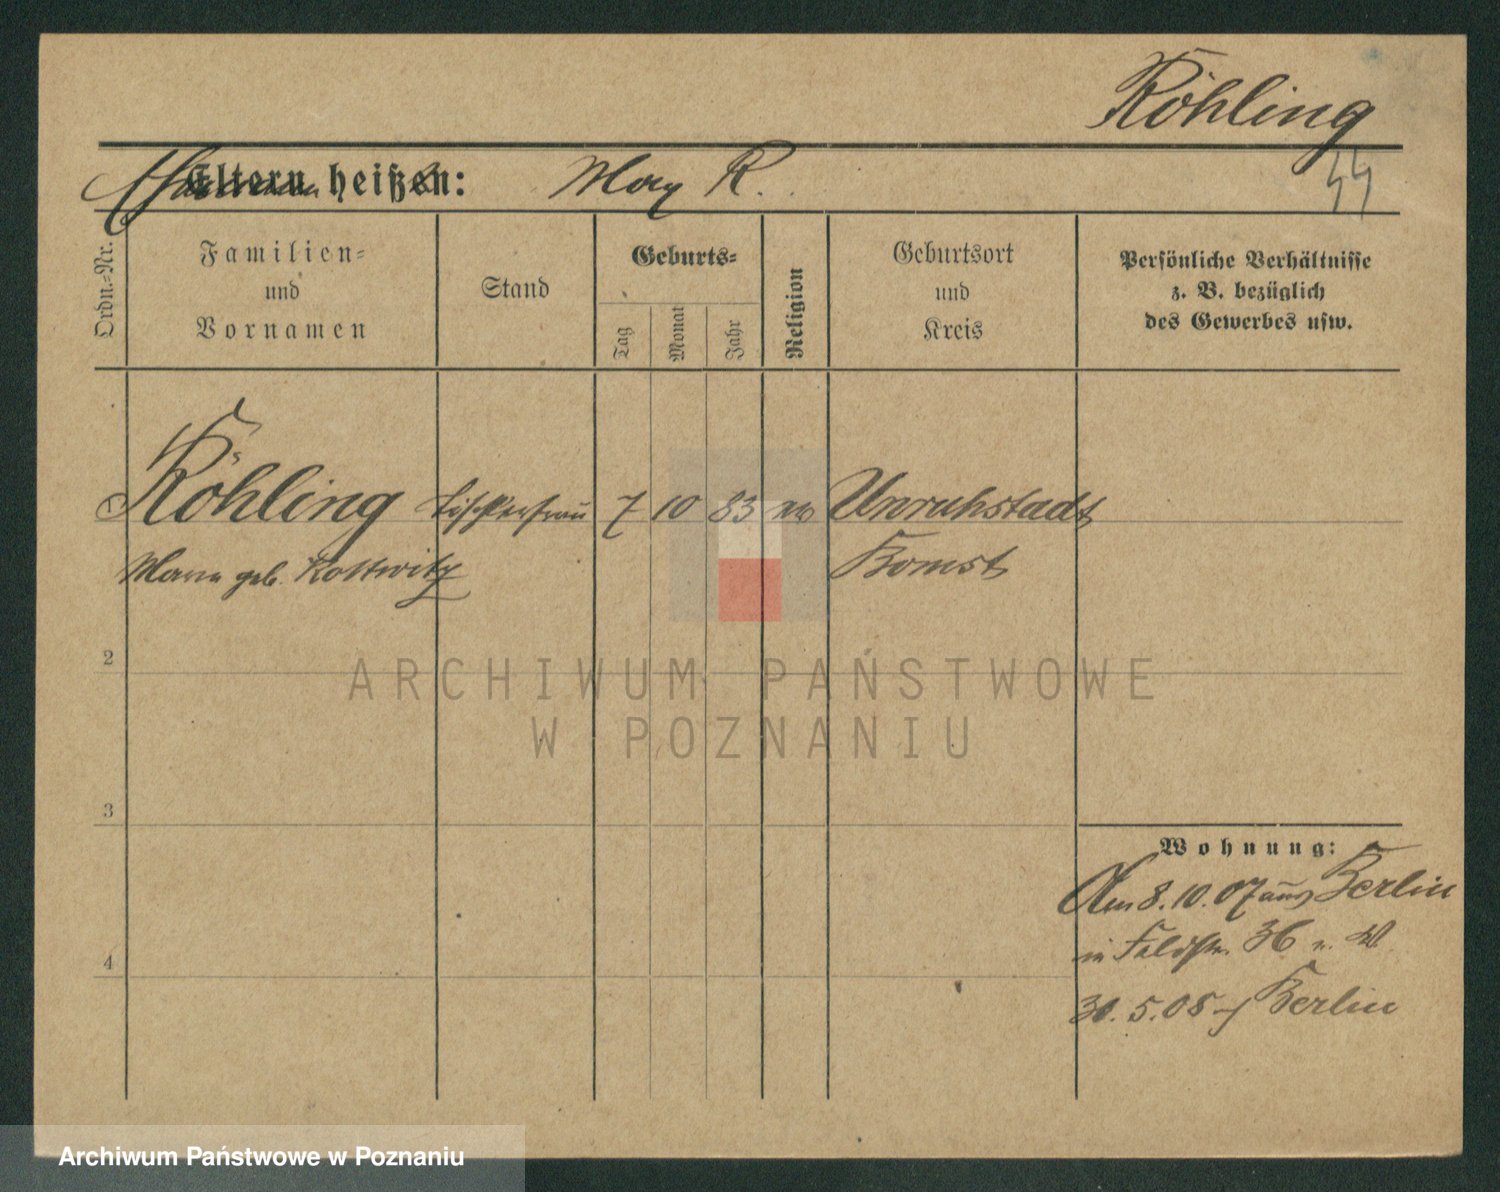 Röhling
44
Eltern heißen: Max R.
Ordn.-Nr.
Familien-
und
Vornamen
Stand
Geburts-
Tag
Monat
Jahr
Religion
Geburtsort
und
Kreis
Persönliche Verhältnisse
z. B. bezüglich
des Gewerbes usw.
1 Röhling Tischlerfrau 7 10 83 Unruhstadt
geb. Kottwitz Bomst
2
ARCHIWUM PAŃSTWOWE
W POZNANIU
3
Wohnung:
Am 8.10.07 aus Berlin
in Feldstr. 36 v. W.
30.5.08 Berlin
4
Archiwum Państwowe w Poznaniu